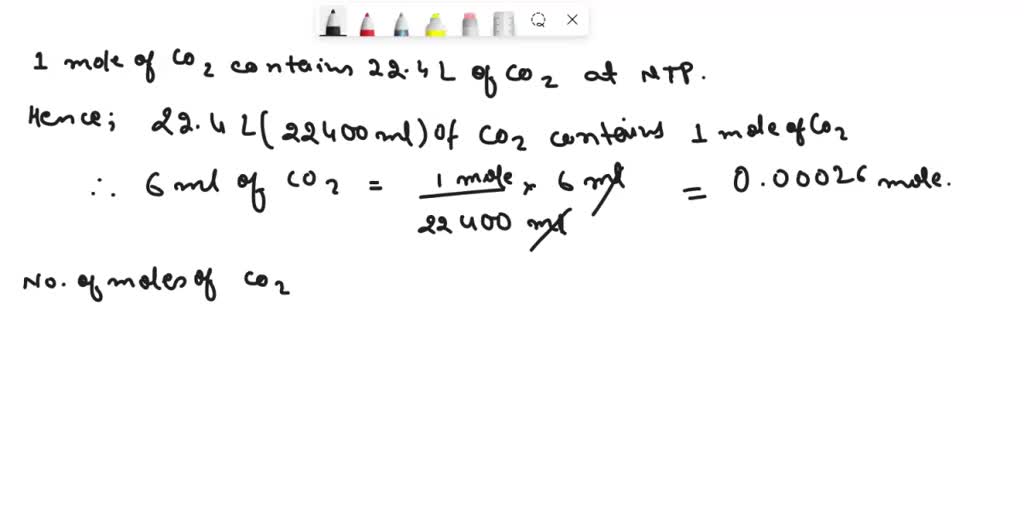 1 mole of CO2 contains 22.4 L of CO2 at NTP.
Hence; 22.4 L (22400 ml) of CO2 contains 1 mole of CO2
∴ 6 ml of CO2 = 1 mole / 22400 ml × 6 ml = 0.00026 mole.
No. of moles of CO2